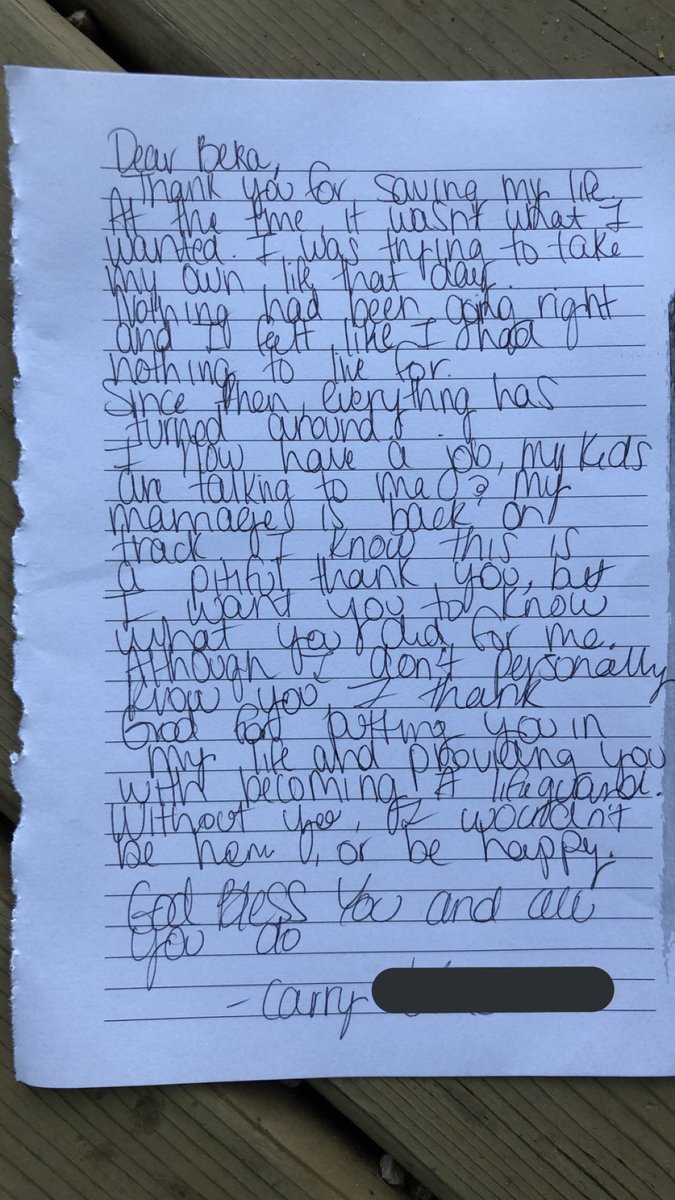 Dear Beka,
Thank you for saving my life.
At the time it wasn't what I
wanted. I was trying to take
my own life that day.
Nothing had been going right
and I felt like I had
nothing to live for.
Since then, everything has
turned around.
I now have a job, my kids
are talking to me & my
marriage is back on
track. I know this is
a pitiful thank you, but
I want you to know
what you did for me.
Although I don't personally
know you, I thank
God for putting you in
my life and providing you
with becoming A lifeguard.
Without you, I wouldn't
be here, or be happy.
God Bless You and all
you do
- Carry